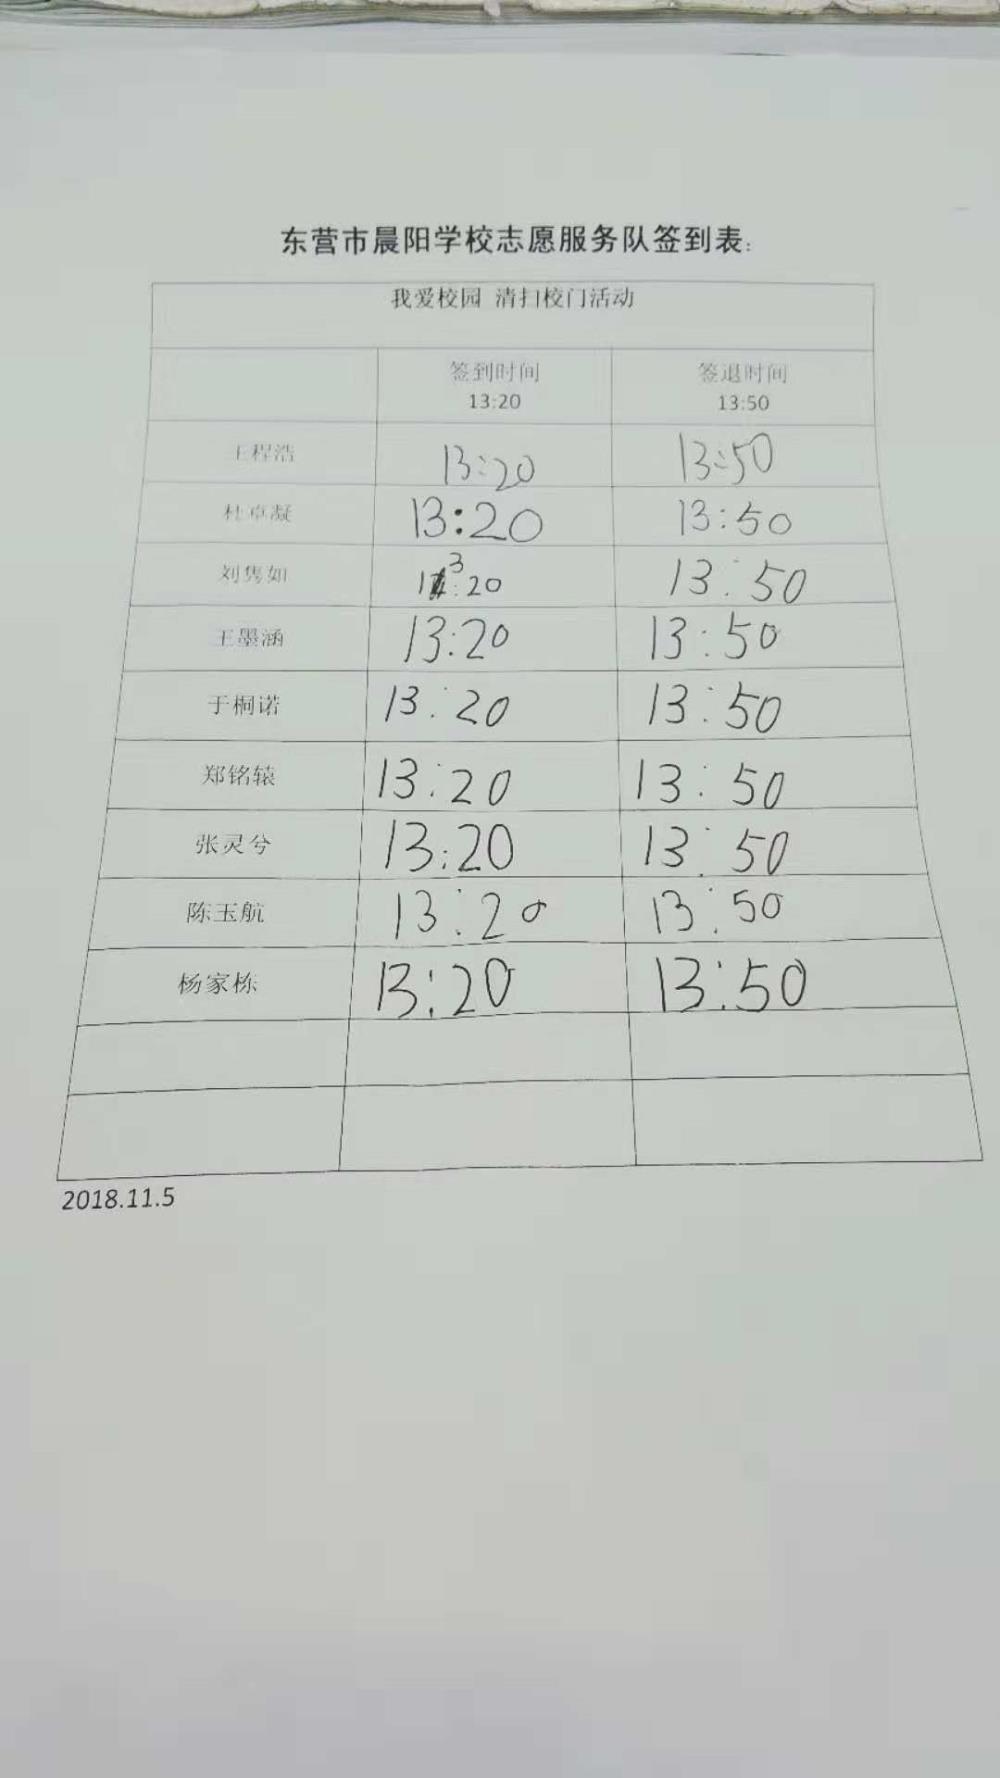 东营市晨阳学校志愿服务队签到表:
我爱校园 清扫校门活动
签到时间 签退时间
13:20 13:50
王程浩 13:20 13:50
杜卓凝 13:20 13:50
刘隽如 13:20 13:50
王墨涵 13:20 13:50
于桐诺 13:20 13:50
郑铭辕 13:20 13:50
张灵兮 13:20 13:50
陈玉航 13:20 13:50
杨家栋 13:20 13:50
2018.11.5